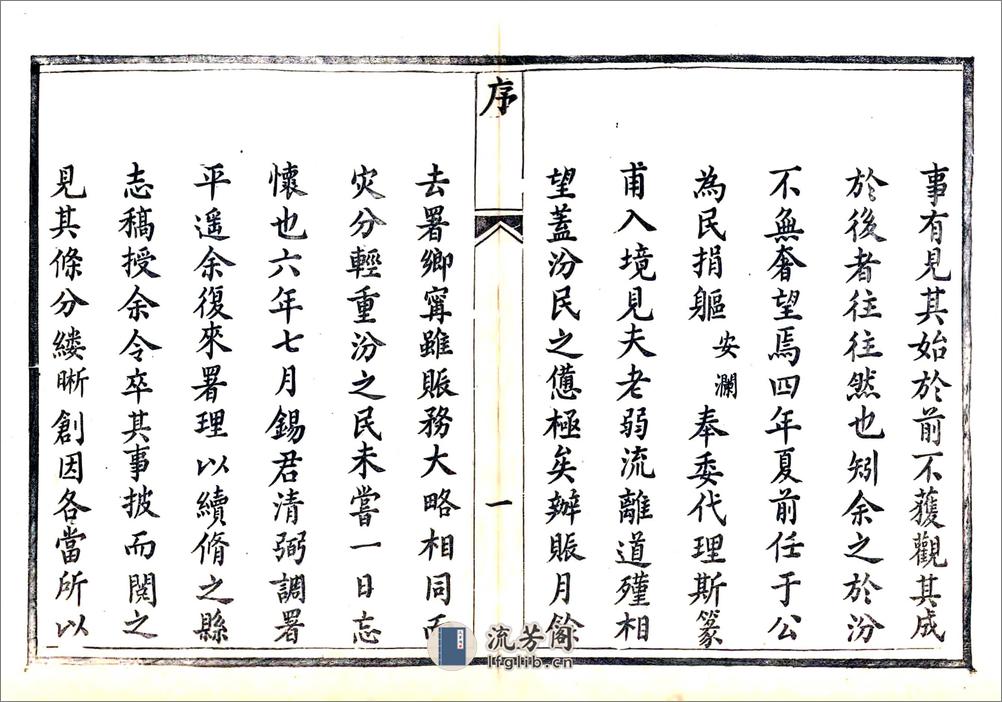 事有見其始於前不獲觀其成
於後者往往然也矧余之於汾
不無奢望焉四年夏前任于公
為民捐軀安瀾奉委代理斯篆
甫入境見夫老弱流離道殣相
望蓋汾民之憊極矣辦賑月餘
序
一
去署鄉寧雖賑務大略相同而
灾分輕重汾之民未嘗一日忘
懷也六年七月錫君清弼調署
平遥余復來署理以續脩之縣
志稿授余令卒其事披而閱之
見其條分縷晰創因各當所以
流芳阁
lfglib.cn